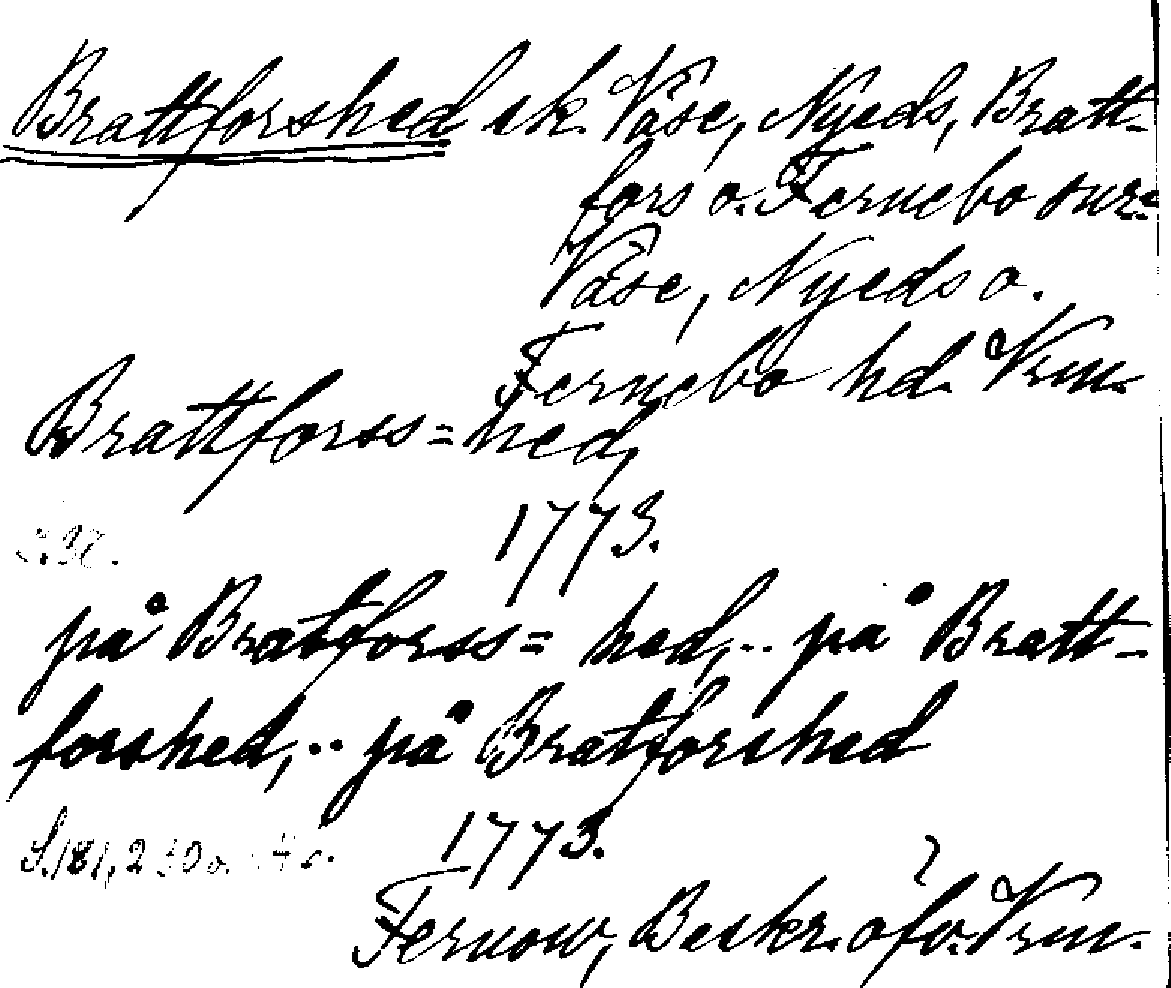 Brattforshed sk. Väse, Nyeds, Bratt-
fors o. Fernebo snr.
Väse, Nyeds o.
Fernebo hd. Vrm.
Brattforss=hed,
1773.
på Bratforss= hed,.. på Bratt-
forshed,.. på Bratforshed
1773.
S. 181, 230 o.
Fernow, Beskr. öfv. Vrm.